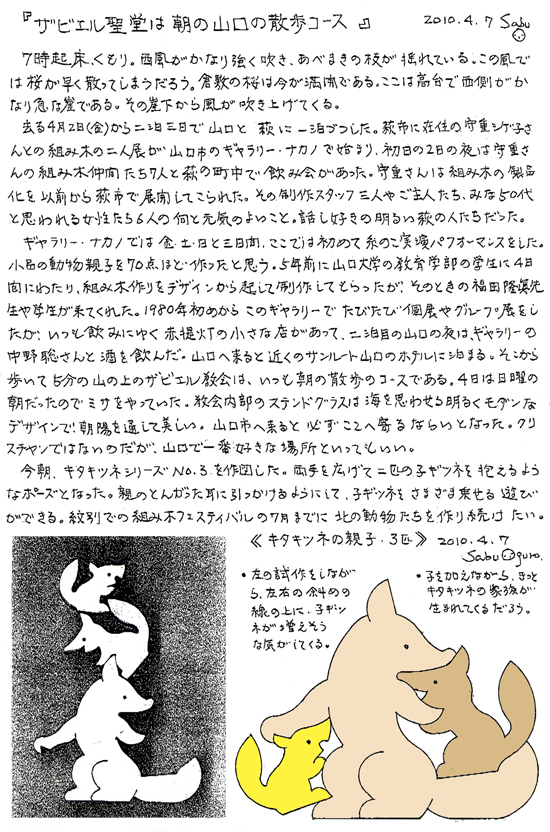 『ザビエル聖堂は朝の山口の散歩コース』 2010.4.7 Sabu
7時起床、くもり。西風がかなり強く吹き、あべまきの枝が揺れている。この風で
は桜が早く散ってしまうだろう。倉敷の桜は今が満開である。ここは高台で西側がか
なり急な崖である。その崖下から風が吹き上げてくる。
去る4月2日(金)から二泊三日で山口と 萩に一泊づつした。萩市に在住の守重シゲ子さ
んとの組み木の二人展が山口市のギャラリー・ナカノで始まり、初日の2日の夜は守重さ
んの組み木仲間たち7人と萩の町中で飲み会があった。守重さんは組み木の製品
化を以前から萩市で展開してこられた。その制作スタッフ三人やご主人たち、みな50代
と思われる女性たち6人の何と元気のよいこと。話し好きの明るい萩の人たちだった。
ギャラリー・ナカノでは金・土・日と三日間、ここでは初めて糸のこ実演パフォーマンスをした。
小品の動物親子を70点ほど作ったと思う。5年前に山口大学の教育学部の学生に4日
間にわたり、組み木作りをデザインから起して制作してもらったが、そのときの福田隆眞先
生や学生が来てくれた。1980年初めからこのギャラリーでたびたび個展やグループ展をし
たが、いつも飲みにゆく赤提灯の小さな店があって、二泊目の山口の夜は、ギャラリーの
中野聡さんと酒を飲んだ。山口へ来ると近くのサンルート山口のホテルに泊まる。そこから
歩いて5分の山の上のザビエル教会は、いつも朝の散歩のコースである。4日は日曜の
朝だったのでミサをやっていた。教会内部のステンドグラスは海を思わせる明るくモダンな
デザインで、朝陽を通して美しい。山口市へ来ると必ずここへ寄るならいとなった。クリ
スチャンではないのだが、山口で一番好きな場所といってもいい。
今朝、キタキツネシリーズNO.3を作図した。両手を広げて二匹の子ギツネを抱えるよう
なポーズとなった。親のとんがった耳に引っかけるようにして、子ギツネをさまざま乗せる遊び
ができる。紋別での組み木フェスティバルの7月までに北の動物たちを作り続けたい。
《キタキツネの親子・3匹》 2010.4.7
Sabu Oguro.
・左の試作をしなが
ら、左右の斜めの
線の上に、子ギツ
ネが増えそう
な気がしてくる。
・子を加えながら、きっと
キタキツネの家族が
生まれてくるだろう。